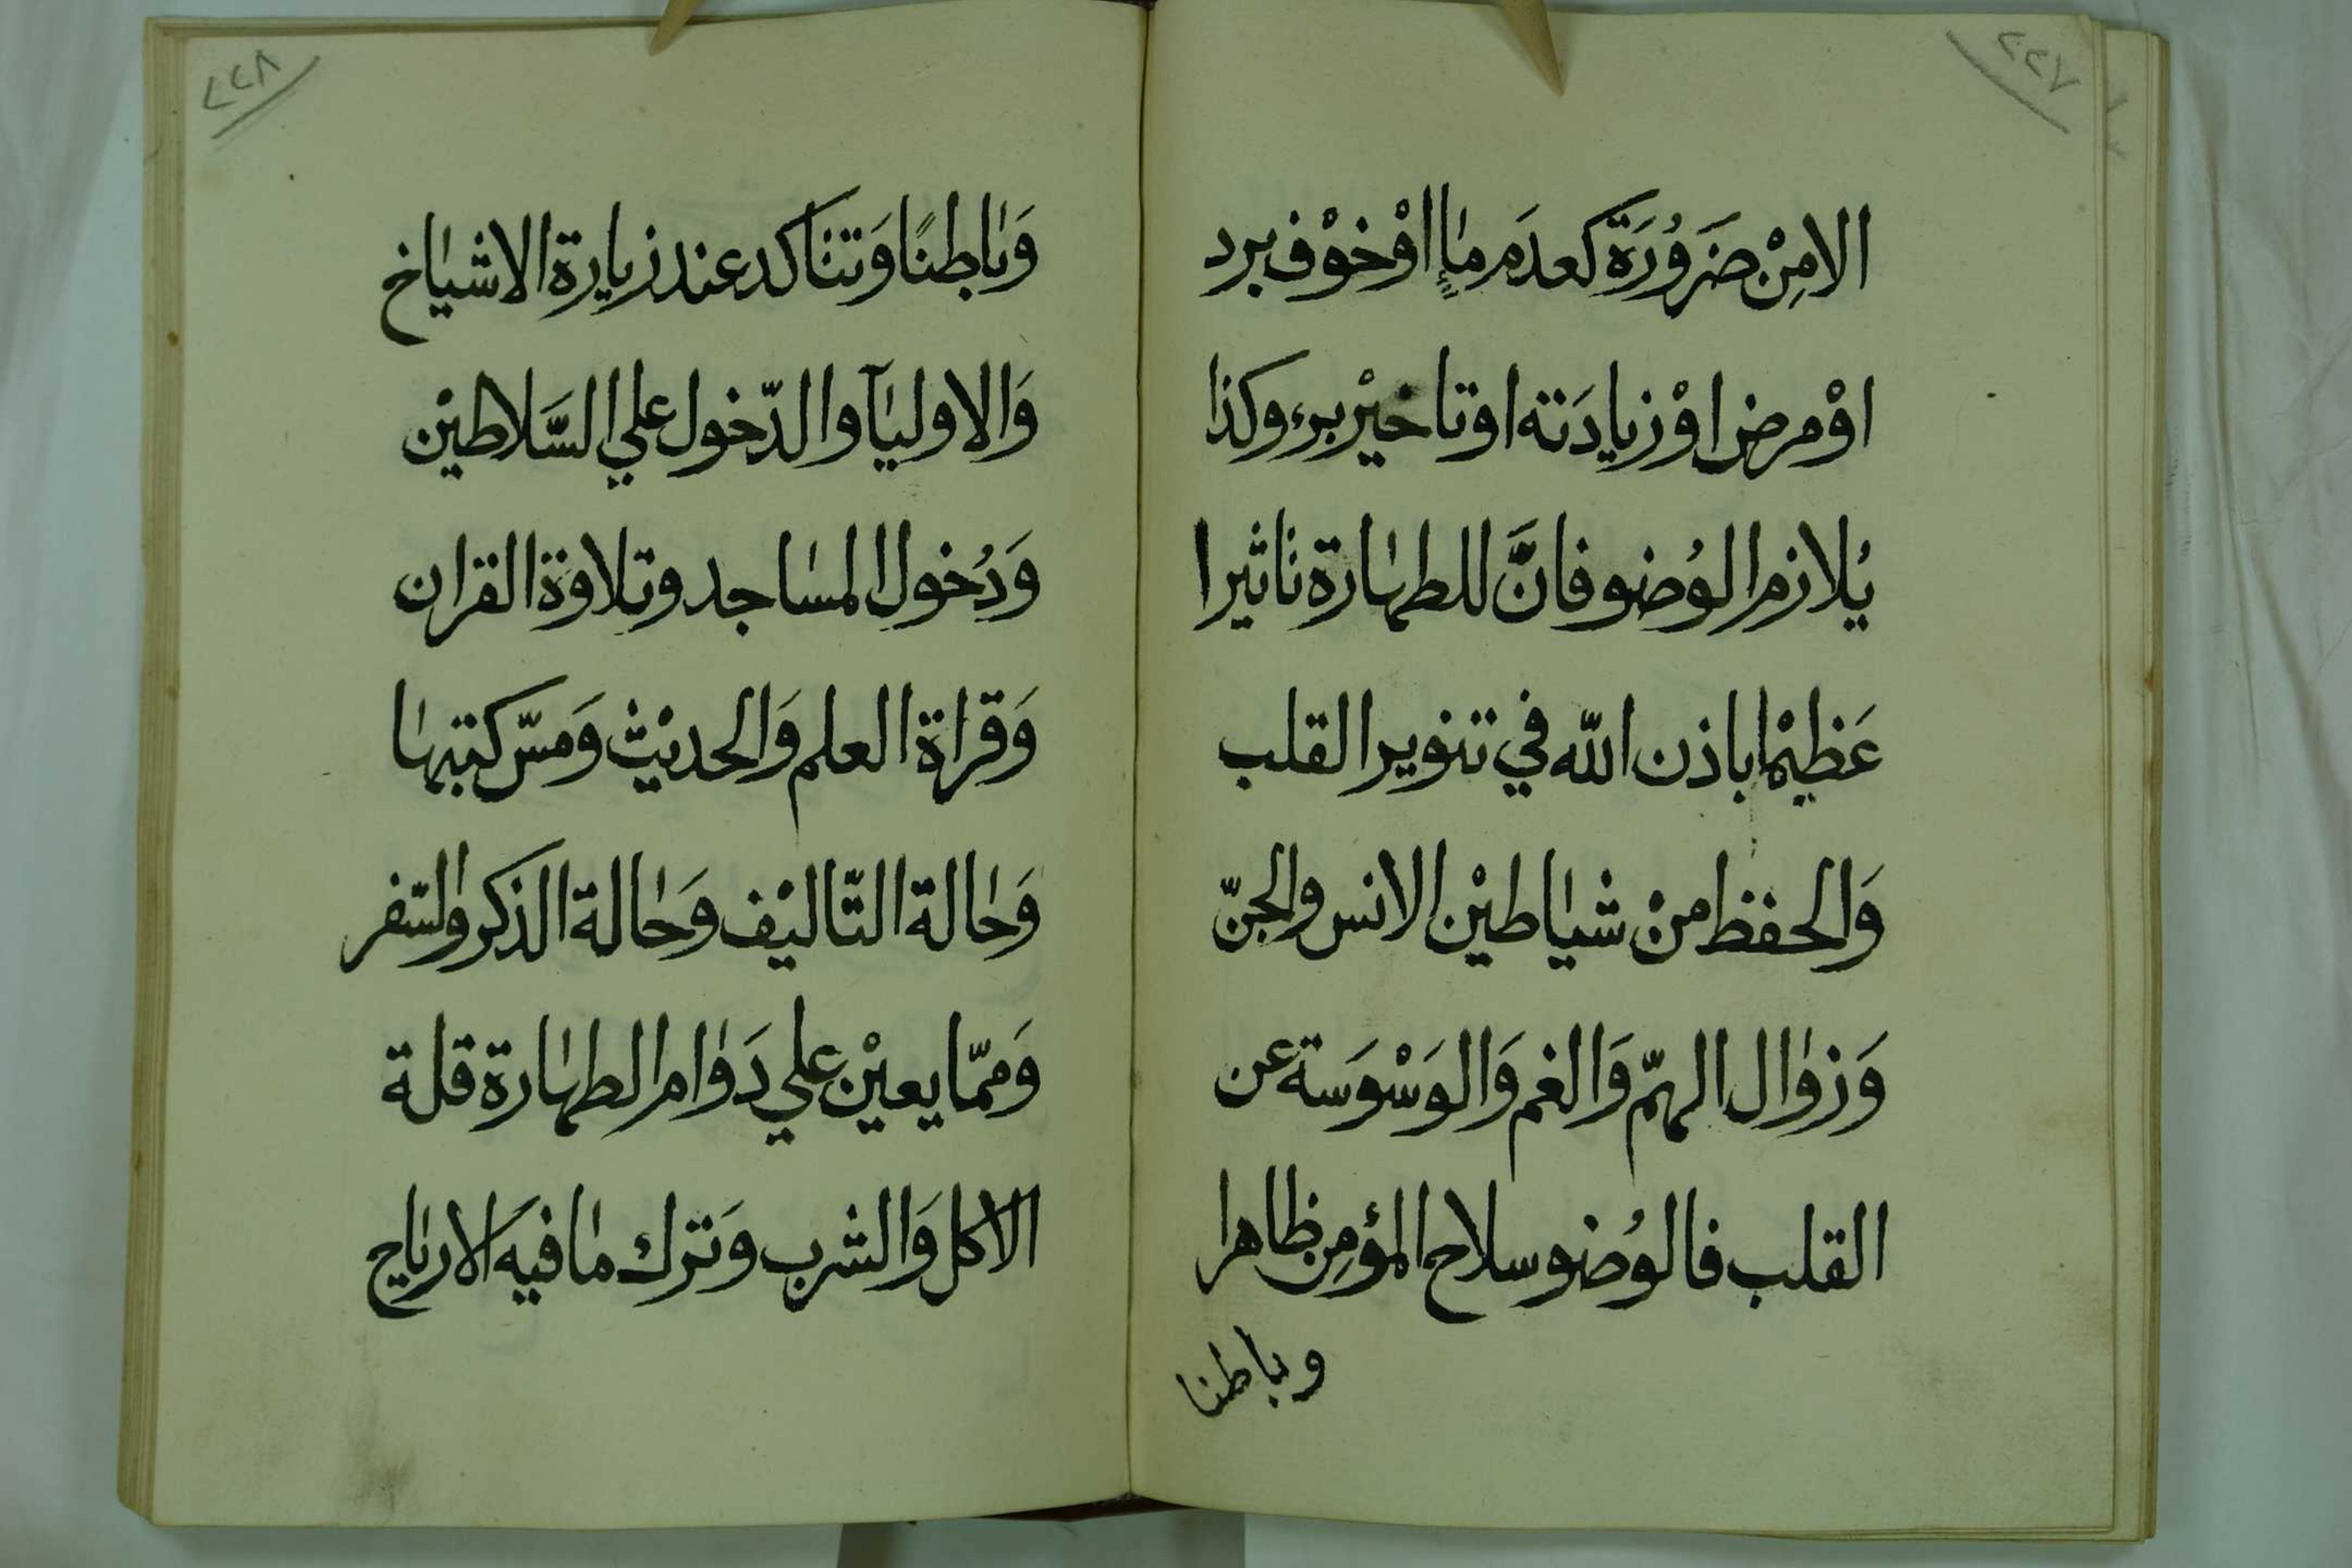 ٢٢٧
الامِنْ ضَرُورَة كعدَم ماءٍ اوْخوْف برد
اوْمرض اوْزيادَته اوتاخيْر برء وكذا
يُلازم الوُضو فانَّ للطهارة تاثيرا
عَظيْما باذن الله في تنوير القلب
وَالحفظ منْ شياطيْن الانس والجنّ
وَزوال الهمّ وَالغم وَالوَسْوَسة عن
القلب فالوُضو سلاح المؤمِن ظاهرا
وباطنا
٢٢٨
وَباطنًا وَتتاكد عند زيارة الاشياخ
وَالاوليآ والدّخول علي السَّلاطيْن
وَدُخول المساجد وتلاوَة القران
وَقراة العلم وَالحديْث وَمسّ كتبها
وَحالة التّاليْف وَحالة الذكر والسّفر
وَممّا يعيْن علي دَوام الطهارة قلة
الاكل وَالشرب وَترك ما فيه الارياح